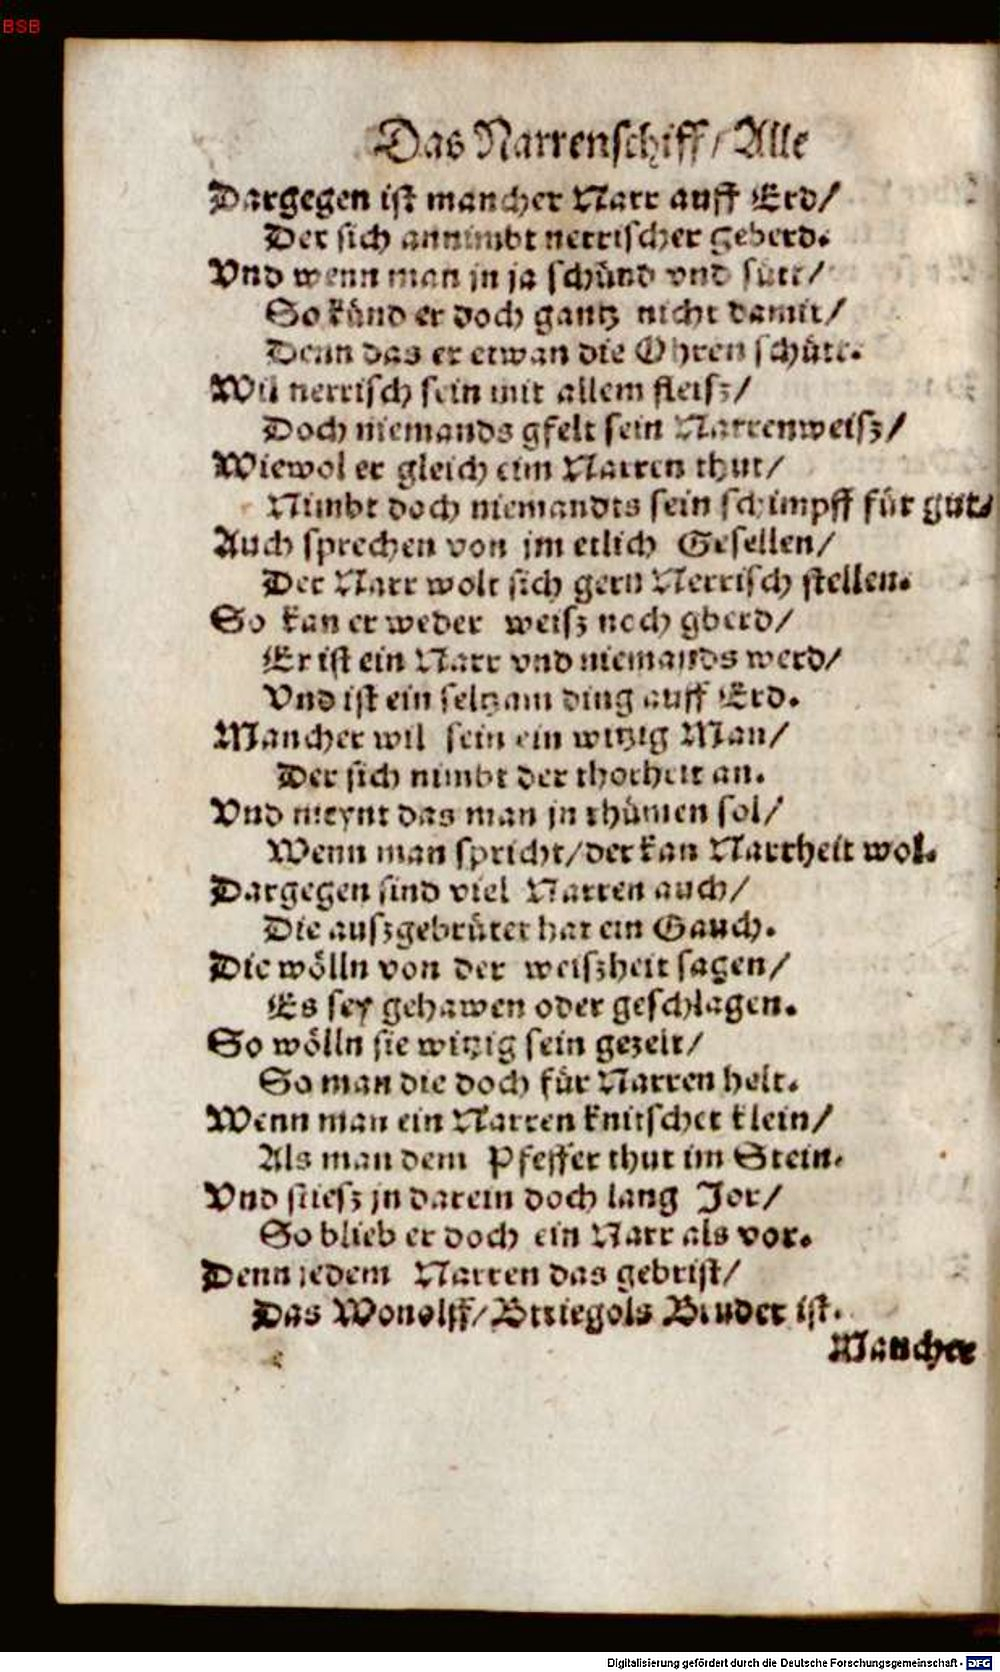 BSB
Das Narrenschiff / Alle
Dargegen ist mancher Narr auff Erd /
Der sich annimbt nerrischer geberd.
Vnd wenn man jn ja schünd vnd sütt /
So künd er doch gantz nicht damit /
Denn das er etwan die Ohren schütt.
Wil nerrisch sein mit allem fleisz /
Doch niemands gfelt sein Narrenweisz /
Wiewol er gleich eim Narren thut /
Nimbt doch niemandts sein schimpff für gut /
Auch sprechen von jm etlich Gesellen /
Der Narr wolt sich gern Nerrisch stellen.
So kan er weder weisz noch gberd /
Er ist ein Narr vnd niemands werd /
Vnd ist ein seltzam ding auff Erd.
Mancher wil sein ein witzig Man /
Der sich nimbt der thorheit an.
Vnd meynt das man jn rhümen sol /
Wenn man spricht / der kan Narrheit wol.
Dargegen sind viel Narren auch /
Die auszgebrütet hat ein Gauch.
Die wölln von der weiszheit sagen /
Es sey gehawen oder geschlagen.
So wölln sie witzig sein gezelt /
So man die doch für Narren helt.
Wenn man ein Narren knitschet klein /
Als man dem Pfeffer thut im Stein.
Vnd stiesz jn darein doch lang Jor /
So blieb er doch ein Narr als vor.
Denn jedem Narren das gebrist /
Das Wonolff / Btriegols Bruder ist.
Mancher
Digitalisierung gefördert durch die Deutsche Forschungsgemeinschaft - DFG